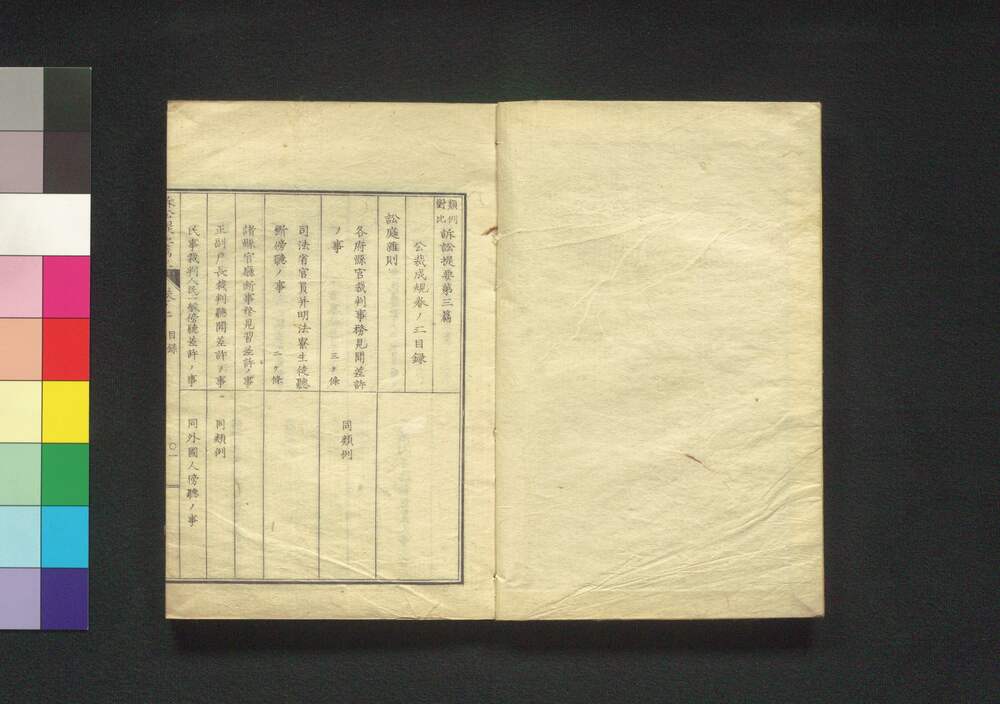 類例
對比
訴訟提要第三篇
公裁成規卷ノ二目録
訟庭雜則
各府縣官裁判事務見聞差許
ノ事
三ヶ條
同類例
司法省官員并明法寮生徒聽
斷傍聽ノ事
二ヶ條
諸縣官廳斷事務見習差許ノ事
正副戸長裁判聽聞差許ノ事
同類例
民事裁判人民一般傍聽差許ノ事
同外國人傍聽ノ事
目録
〇一